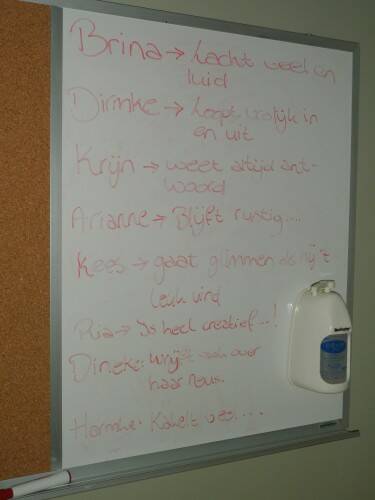 Brina → Lacht veel en
luid
Dirmke → Loopt vrolijk in
en uit
Krijn → weet altijd ant-
woord
Arianne → Blijft rustig....
Kees → gaat glimmen als hij 't
leuk vind
Ria → Is heel creatief...!
Dineke: wrijft over
haar neus.
Harmke: Kakelt veel....